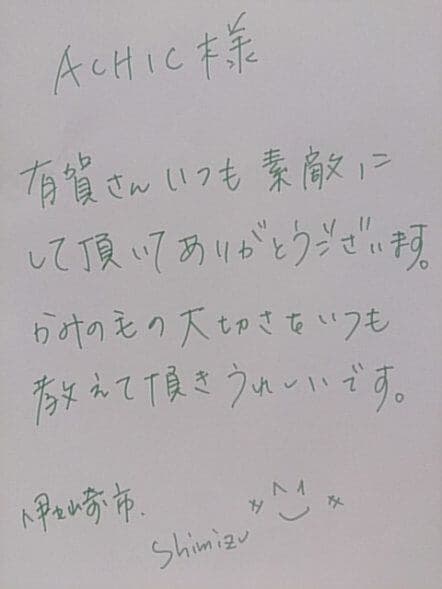 ACHIC様
有賀さんいつも素敵に
して頂いてありがとうございます。
かみのもの大切さをいつも
教えて頂きうれしいです。
伊勢崎市.
Shimizu